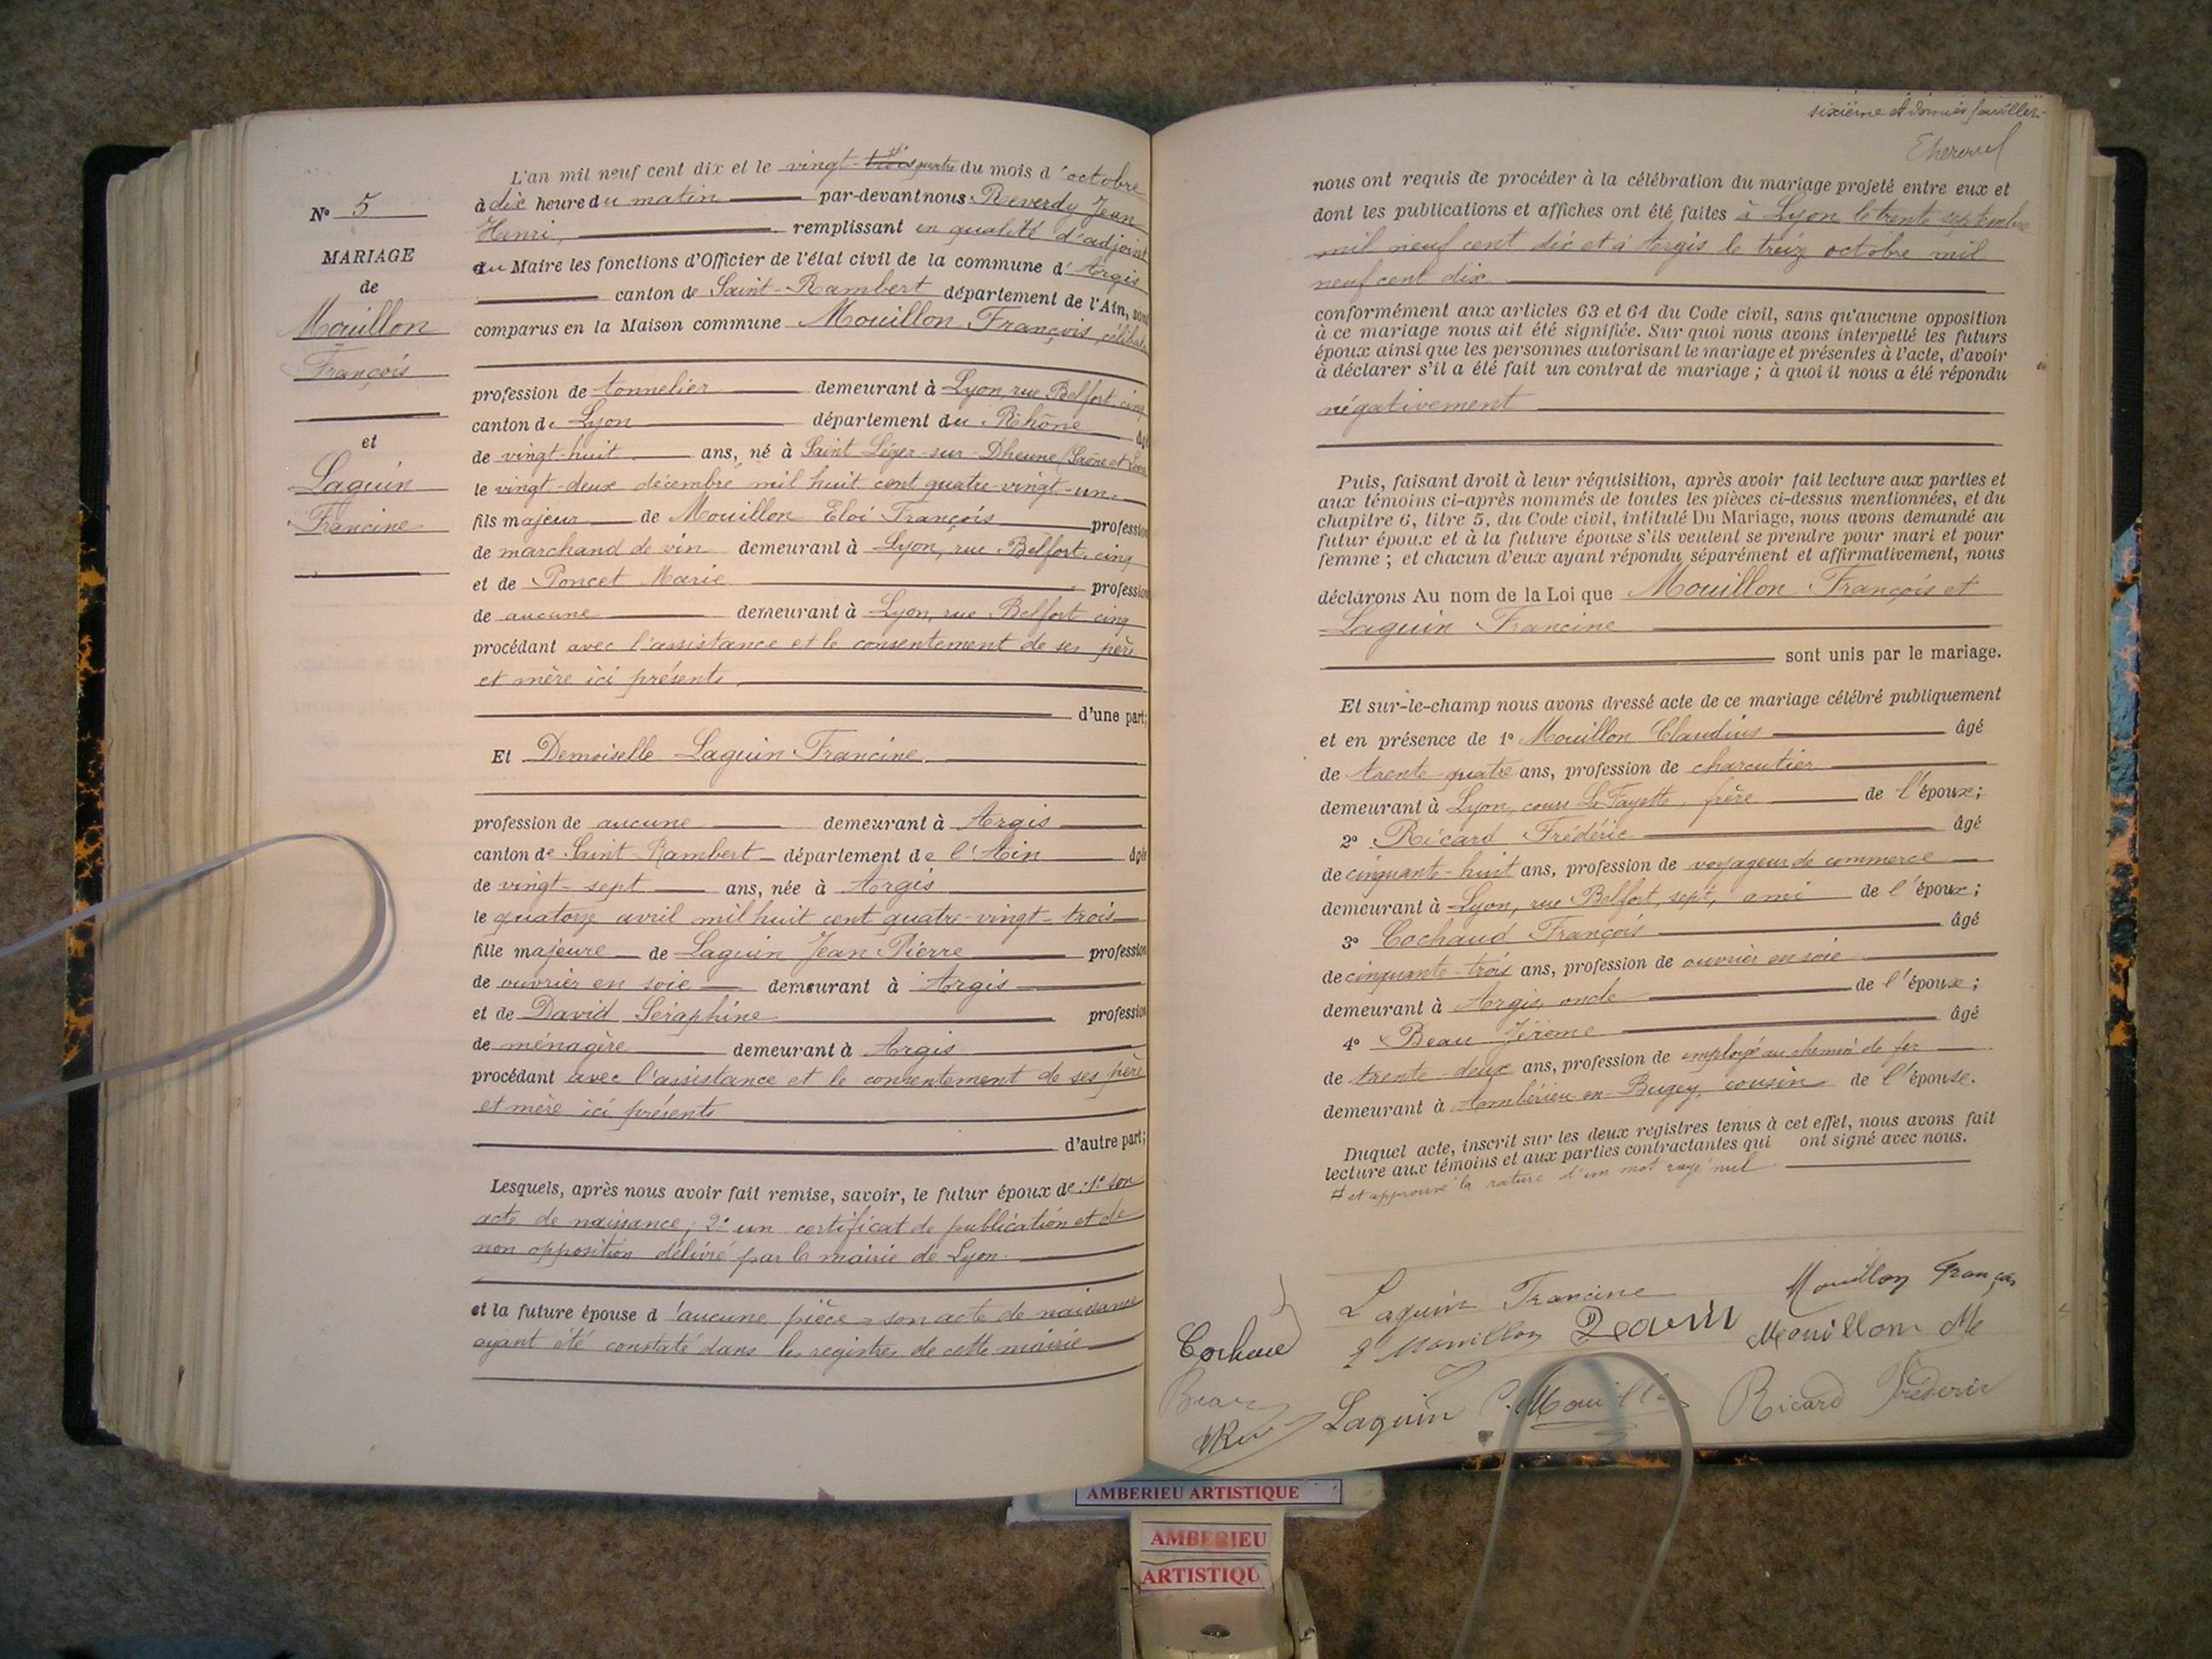 N° 5
MARIAGE
de
Mouillon
François
et
Laguin
Francine
L'an mil neuf cent dix et le vingt-trois quatre du mois d'octobre
à dix heure du matin par-devant nous Reverdy Jean
Henri, remplissant en qualité d'adjoint
au Maire les fonctions d'Officier de l'état civil de la commune d'Argis
canton de Saint-Rambert département de l'Ain, sont
comparus en la Maison commune Mouillon François, célibataire
profession de tonnelier demeurant à Lyon, rue Belfort, cinq
canton de Lyon département du Rhône âgé
de vingt-huit ans, né à Saint Léger-sur-Dheune (Saône et Loire
le vingt-deux décembre mil huit cent quatre vingt-un.
fils majeur de Mouillon Eloi François profession
de marchand de vin demeurant à Lyon, rue Belfort, cinq
et de Poncet Marie profession
de aucune demeurant à Lyon, rue Belfort cinq
procédant avec l'assistance et le consentement de ses père
et mère ici présents
d'une part;
Et Demoiselle Laguin Francine,
profession de aucune demeurant à Argis
canton de Saint-Rambert département de l'Ain âgée
de vingt-sept ans, née à Argis
le quatorze avril mil huit cent quatre-vingt-trois
fille majeure de Laguin Jean Pierre profession
de ouvrier en soie demeurant à Argis
et de David Séraphine profession
de ménagère demeurant à Argis
procédant avec l'assistance et le consentement de ses père
et mère ici présents
d'autre part;
Lesquels, après nous avoir fait remise, savoir, le futur époux de : 1° son
acte de naissance; 2° un certificat de publication et de
non opposition délivré par la mairie de Lyon.
et la future épouse d'aucune pièce = son acte de naissance
ayant été constaté dans les registres de cette mairie
sixième et dernier feuillet.
nous ont requis de procéder à la célébration du mariage projeté entre eux et
dont les publications et affiches ont été faites à Lyon le trente septembre
mil neuf cent dix et à Argis le treize octobre mil
neuf cent dix
conformément aux articles 63 et 64 du Code civil, sans qu'aucune opposition
à ce mariage nous ait été signifiée. Sur quoi nous avons interpellé les futurs
époux ainsi que les personnes autorisant le mariage et présentes à l'acte, d'avoir
à déclarer s'il a été fait un contrat de mariage ; à quoi il nous a été répondu
négativement
Puis, faisant droit à leur réquisition, après avoir fait lecture aux parties et
aux témoins ci-après nommés de toutes les pièces ci-dessus mentionnées, et du
chapitre 6, titre 5, du Code civil, intitulé Du Mariage, nous avons demandé au
futur époux et à la future épouse s'ils veulent se prendre pour mari et pour
femme ; et chacun d'eux ayant répondu séparément et affirmativement, nous
déclarons Au nom de la Loi que Mouillon François et
Laguin Francine
sont unis par le mariage.
Et sur-le-champ nous avons dressé acte de ce mariage célébré publiquement
et en présence de 1° Mouillon Claudius âgé
de trente-quatre ans, profession de charcutier
demeurant à Lyon, cours La Fayette, frère de l'époux;
2° Ricard Frédéric âgé
de cinquante-huit ans, profession de voyageur de commerce
demeurant à Lyon, rue Belfort, sept, ami de l'époux;
3° Cochaud François âgé
de cinquante-trois ans, profession de ouvrier en soie
demeurant à Argis, oncle de l'épouse;
4° Beau Jérome âgé
de trente-deux ans, profession de employé au chemin de fer
demeurant à Ambérieu-en-Bugey, cousin de l'épouse.
Duquel acte, inscrit sur les deux registres tenus à cet effet, nous avons fait
lecture aux témoins et aux parties contractantes qui ont signé avec nous.
# et approuvé la rature d'un mot rayé nul
Laguin Francine Mouillon François
Mouillon Mouillon
Beau Laguin C. Mouillon Ricard Fréderic
AMBERIEU ARTISTIQUE
AMBERIEU
ARTISTIQU